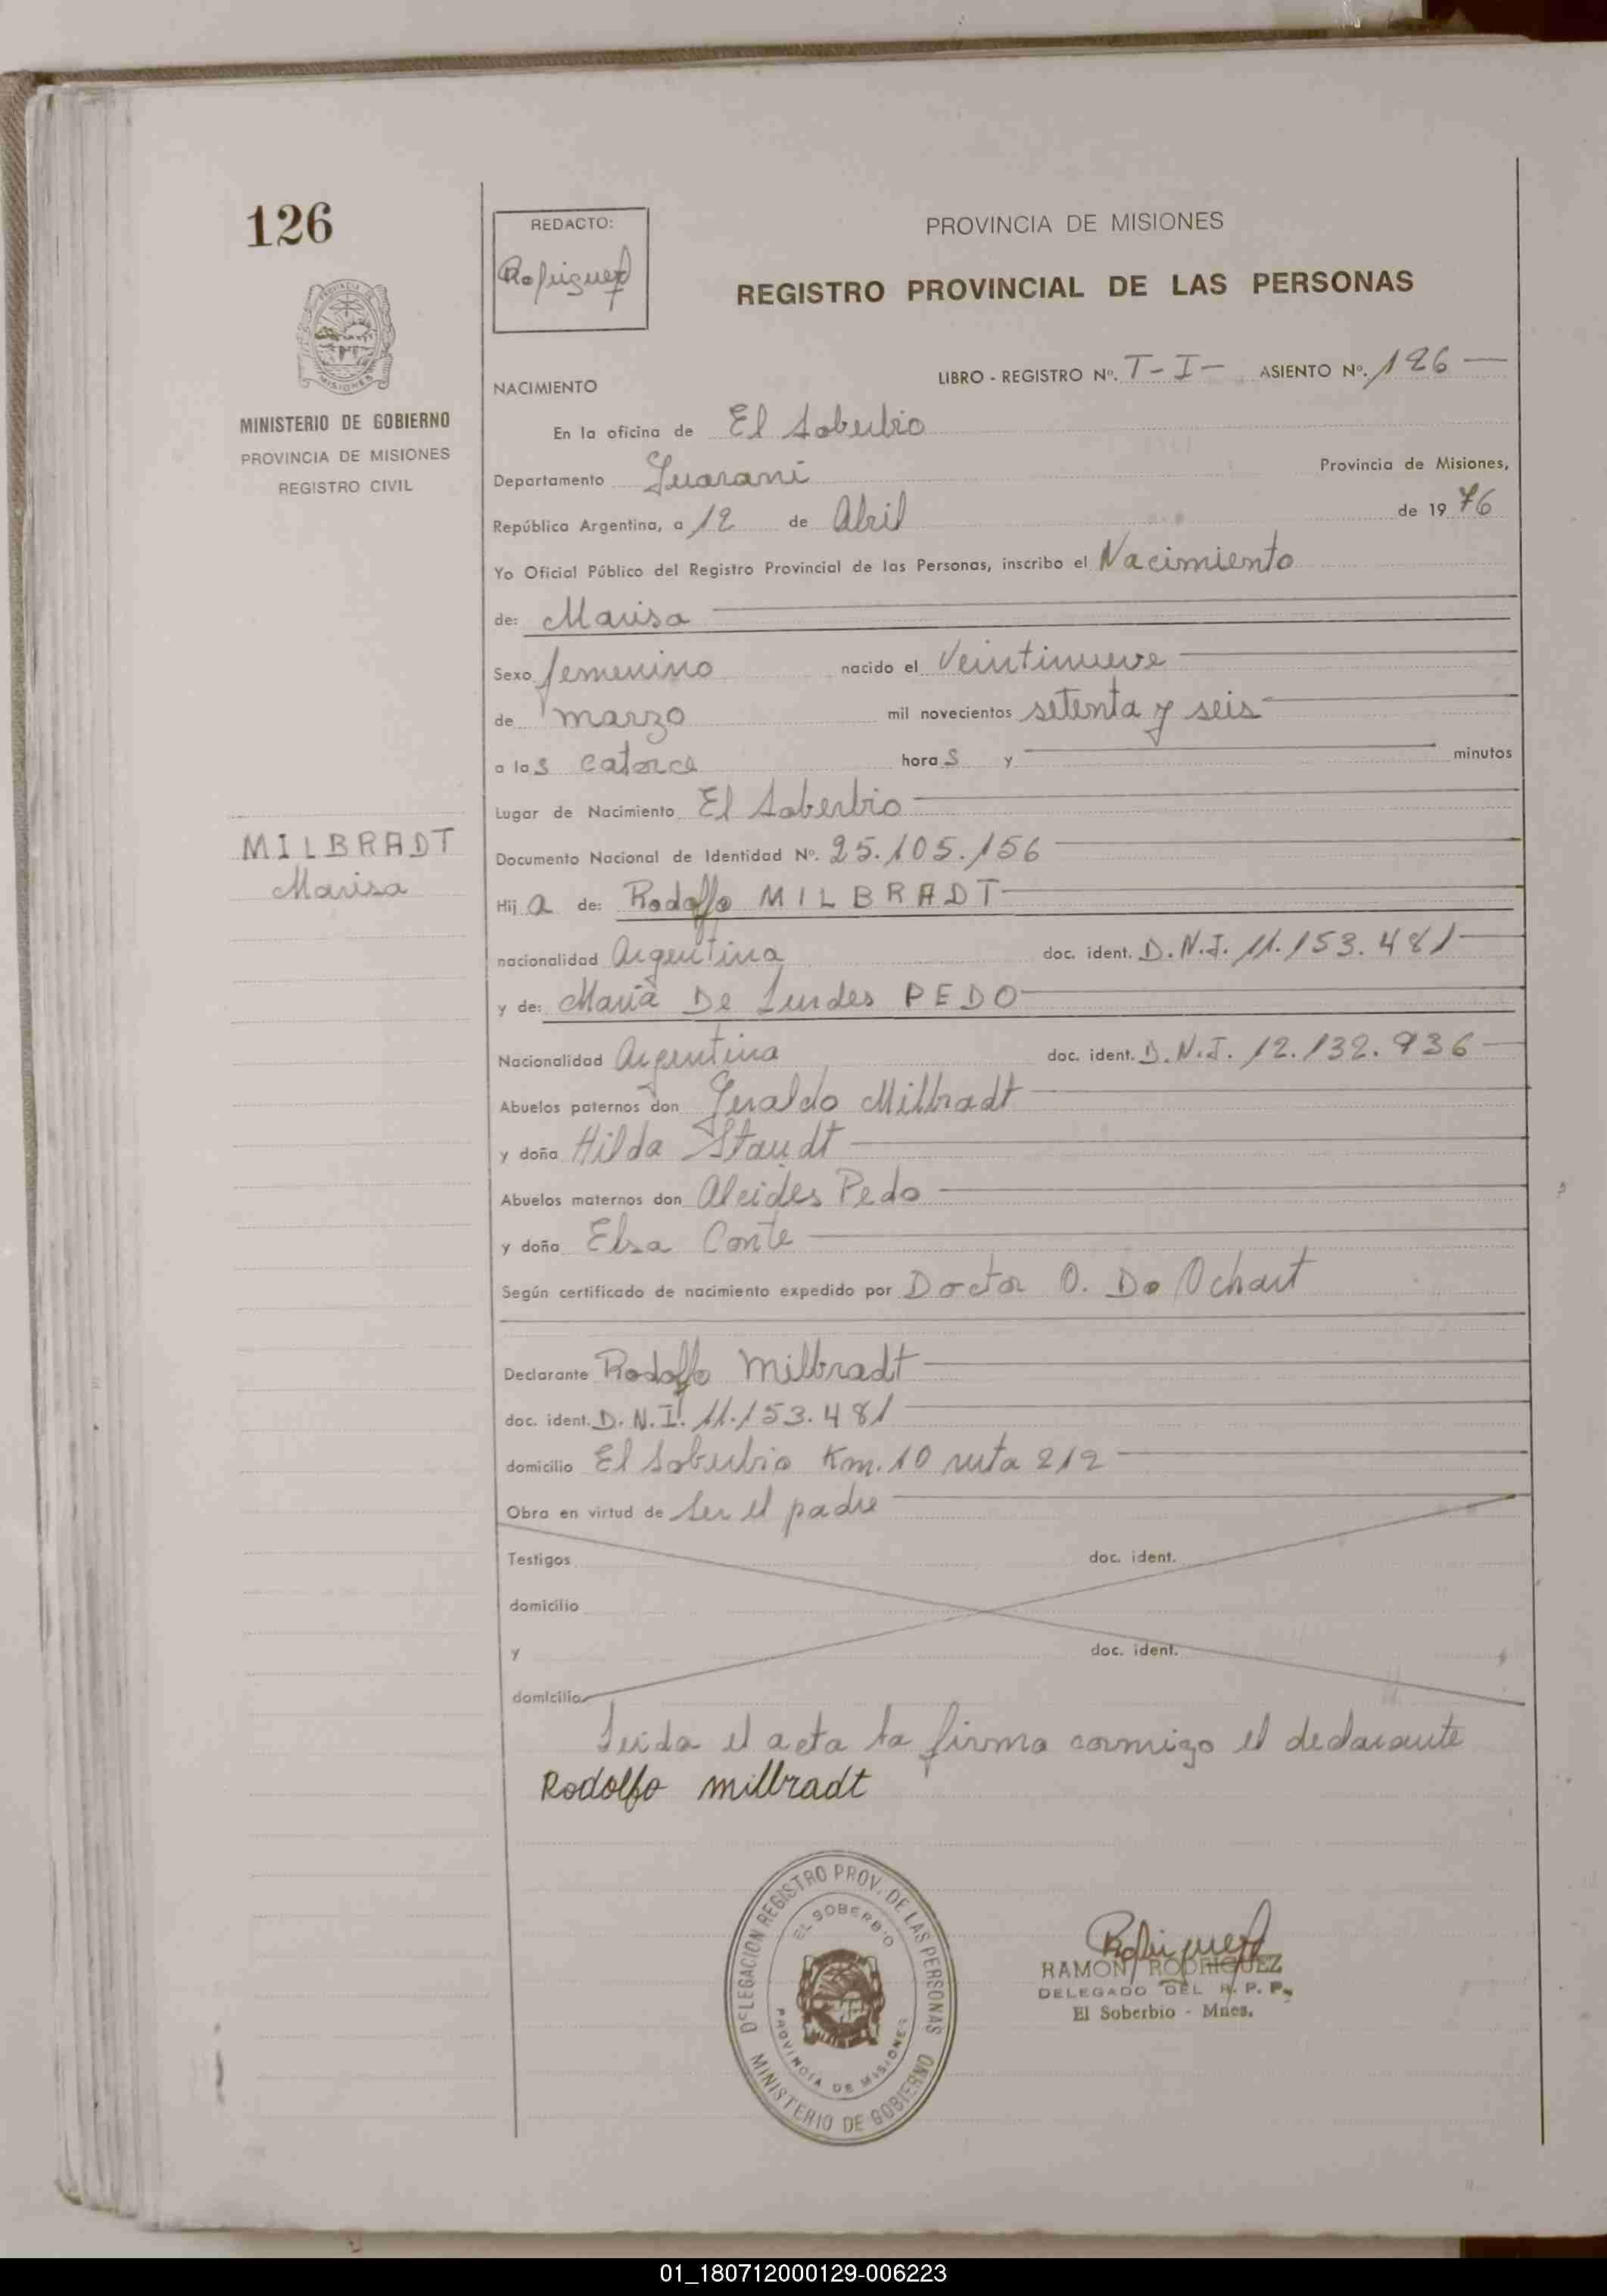 126
REDACTO:
Rodriguez
PROVINCIA DE MISIONES
REGISTRO PROVINCIAL DE LAS PERSONAS
PROVINCIA DE MISIONES
MINISTERIO DE GOBIERNO
PROVINCIA DE MISIONES
REGISTRO CIVIL
NACIMIENTO
LIBRO - REGISTRO Nº. T-I- ASIENTO Nº. 126
En la oficina de El Soberbio
Departamento Guaraní Provincia de Misiones,
República Argentina, a 12 de Abril de 1976
Yo Oficial Público del Registro Provincial de las Personas, inscribo el Nacimiento
de: Marisa
Sexo femenino nacido el Veintinueve
de marzo mil novecientos setenta y seis
a las catorce horas y minutos
Lugar de Nacimiento El Soberbio
MILBRADT
Marisa
Documento Nacional de Identidad Nº. 25.105.156
Hija de: Rodolfo MILBRADT
nacionalidad Argentina doc. ident. D.N.I. 11.153.481
y de: María De Lurdes PEDO
Nacionalidad Argentina doc. ident. D.N.I. 12.132.936
Abuelos paternos don Geraldo Milbradt
y doña Hilda Staudt
Abuelos maternos don Alcides Pedo
y doña Elsa Conte
Según certificado de nacimiento expedido por Doctor O. Do Ochart
Declarante Rodolfo Milbradt
doc. ident. D.N.I. 11.153.481
domicilio El Soberbio Km. 10 ruta 212
Obra en virtud de Ser el padre
Testigos doc. ident.
domicilio
y doc. ident.
domicilio
Leida el acta la firma conmigo el declarante
Rodolfo milbradt
DELEGACION REGISTRO PROV. DE LAS PERSONAS
EL SOBERBIO
PROVINCIA DE MISIONES
MINISTERIO DE GOBIERNO
Rodriguez
RAMON RODRIGUEZ
DELEGADO DEL R. P. P.
El Soberbio - Mnes.
01_180712000129-006223